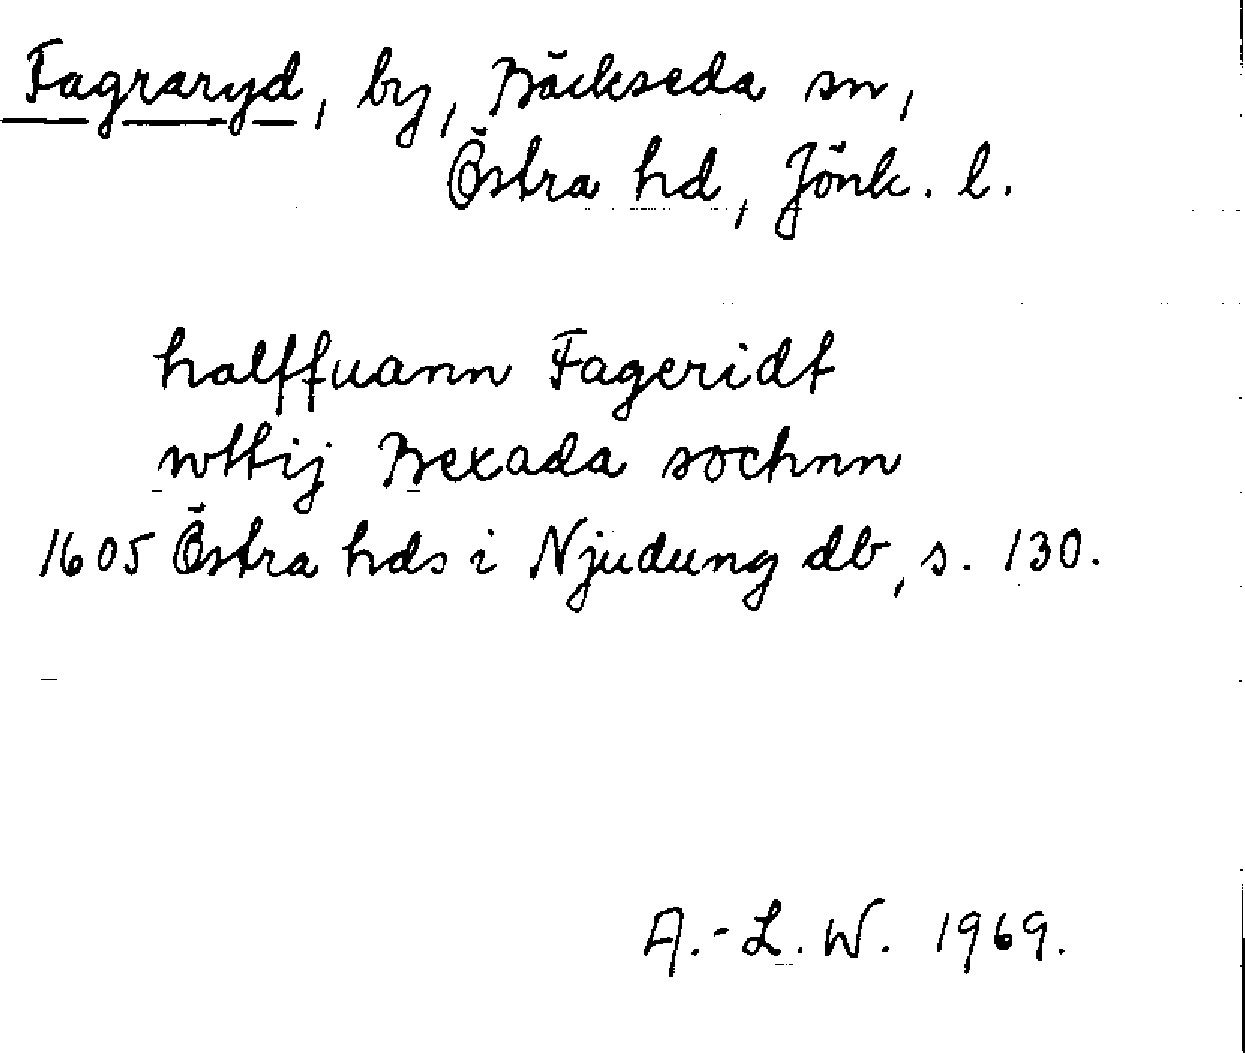 Fagraryd, by, Bäckseda sn,
Östra hd, Jönk. l.
halffuann Fageridt
wttij Bexada sochnn
1605 Östra hds i Njudung db, s. 130.
A.-L. W. 1969.